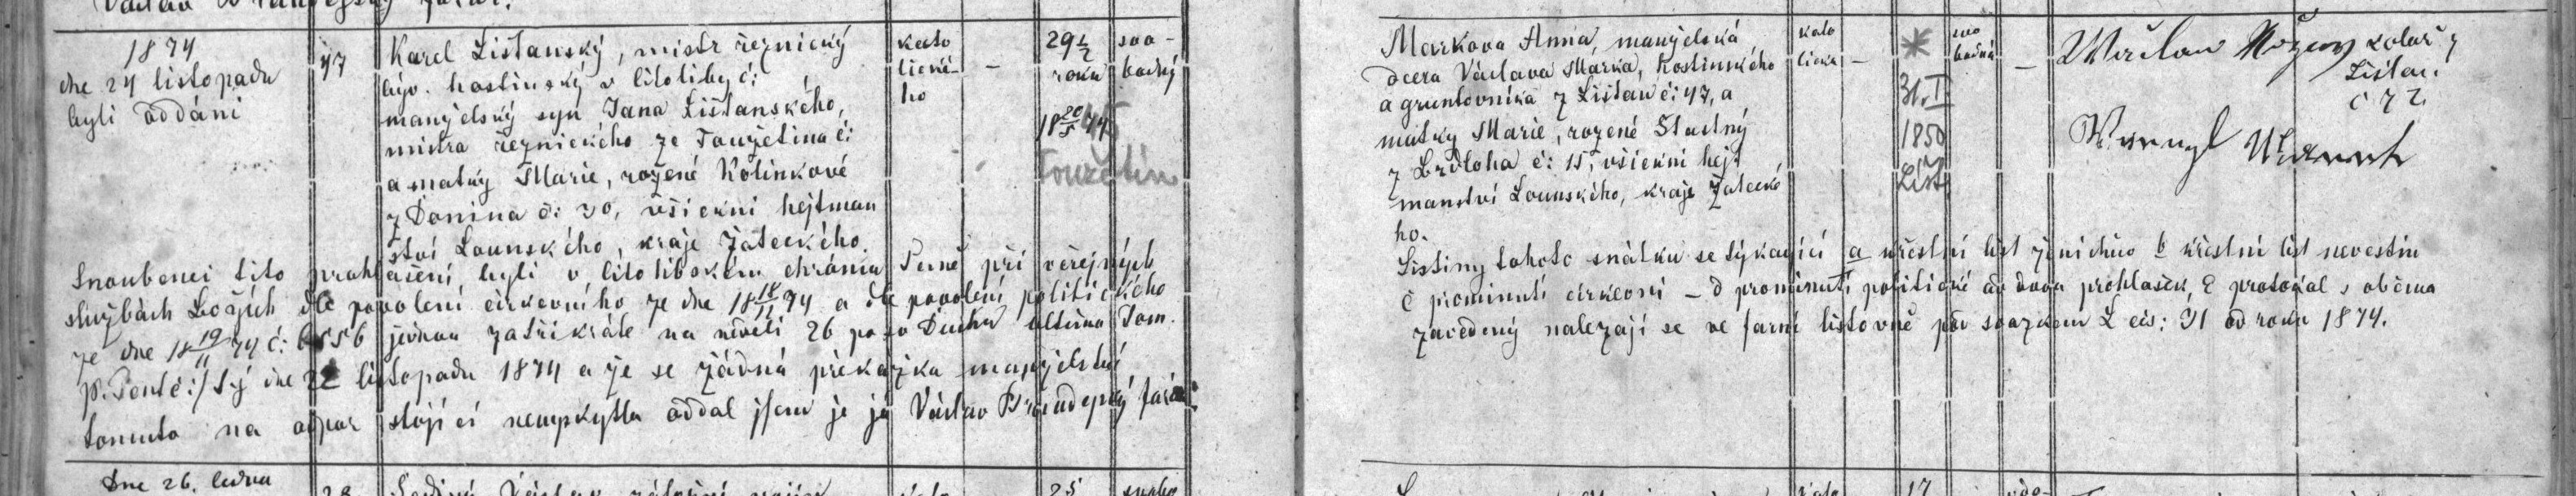 1874
dne 24 listopadu
byli oddáni
47
Karel Lištanský, mistr řeznický
býv. hostinský v Litoliby č:
manželský syn Jana Lištanského,
mistra řeznického ze Toužetina č:
a matky Marie, rozené Kolínkové
z Donína č: 30, všickni hejtman
ství Lounského, kraje Žateckého.
kato
lické-
ho
-
29 1/2
roku
18 20/5 45
Toužetin
svo-
bodný
Snoubenci tito prohlášeni byli v litolibském chrámu Páně při veřejných
službách Božích dle povolení církevního ze dne 18 18/11 74 a dle povolení politického
ze dne 18 19/11 74 č: jednou za třikráte na neděli 26 po sv Duchu
tj dne 22 listopadu 1874 a že se žádná překážka manželství
tomuto na odpor stojící nevyskytla oddal jsem je já Václav farář
Markova Anna, manželská
dcera Václava Marka, hostinského
a gruntovníka z Lištan č: 47, a
matky Marie, rozené Šťastný
z Brdloha č: 15, všickni hejt
manství Lounského, kraje Žatecké
ho.
kato
lická
-
*
31.I
1850
Lišt
svo
bodná
-
Václav kolář z
Lištan
č 72
Listiny tohoto sňatku se týkající a křestní list ženichův b křestní list nevěstin
c prominutí církevní - d prominutí politické od dvou prohlášek, e protokol s oběma
zavedený nalezají se ve farní listovně pod svazkem L čís: 31 od roku 1874.
Dne 26. ledna
28
25
17